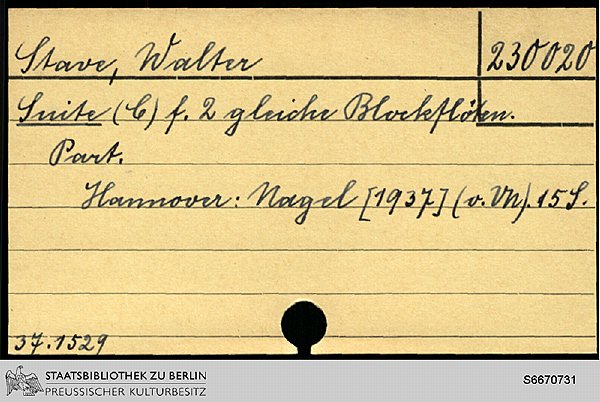 Stave, Walter 230020
Suite (C) f. 2 gleiche Blockflöten.
Part.
Hannover: Nagel [1937] (o. VN). 15 S.
37.1529
STAATSBIBLIOTHEK ZU BERLIN
PREUSSISCHER KULTURBESITZ
S6670731